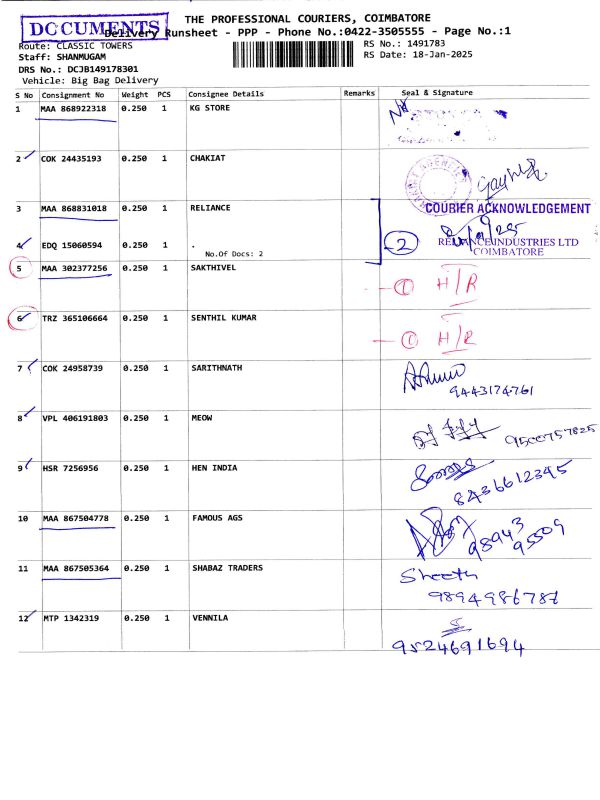 DOCUMENTS
THE PROFESSIONAL COURIERS, COIMBATORE
Delivery Runsheet - PPP - Phone No.:0422-3505555 - Page No.:1
Route: CLASSIC TOWERS
RS No.: 1491783
Staff: SHANMUGAM
RS Date: 18-Jan-2025
DRS No.: DCJB149178301
Vehicle: Big Bag Delivery
S No Consignment No Weight PCS Consignee Details Remarks Seal & Signature
1 MAA 868922318 0.250 1 KG STORE
2 COK 24435193 0.250 1 CHAKIAT
3 MAA 868831018 0.250 1 RELIANCE
COURIER ACKNOWLEDGEMENT
4 EDQ 15060594 0.250 1 . 2
RELIANCE INDUSTRIES LTD
No.Of Docs: 2
COIMBATORE
5 MAA 302377256 0.250 1 SAKTHIVEL
1 H/R
6 TRZ 365106664 0.250 1 SENTHIL KUMAR
1 H/R
7 COK 24958739 0.250 1 SARITHNATH
9443174761
8 VPL 406191803 0.250 1 MEOW
9500757825
9 HSR 7256956 0.250 1 HEN INDIA
8436612345
10 MAA 867504778 0.250 1 FAMOUS AGS
98943
95509
11 MAA 867505364 0.250 1 SHABAZ TRADERS
Sheeth
9894986787
12 MTP 1342319 0.250 1 VENNILA
9524691694